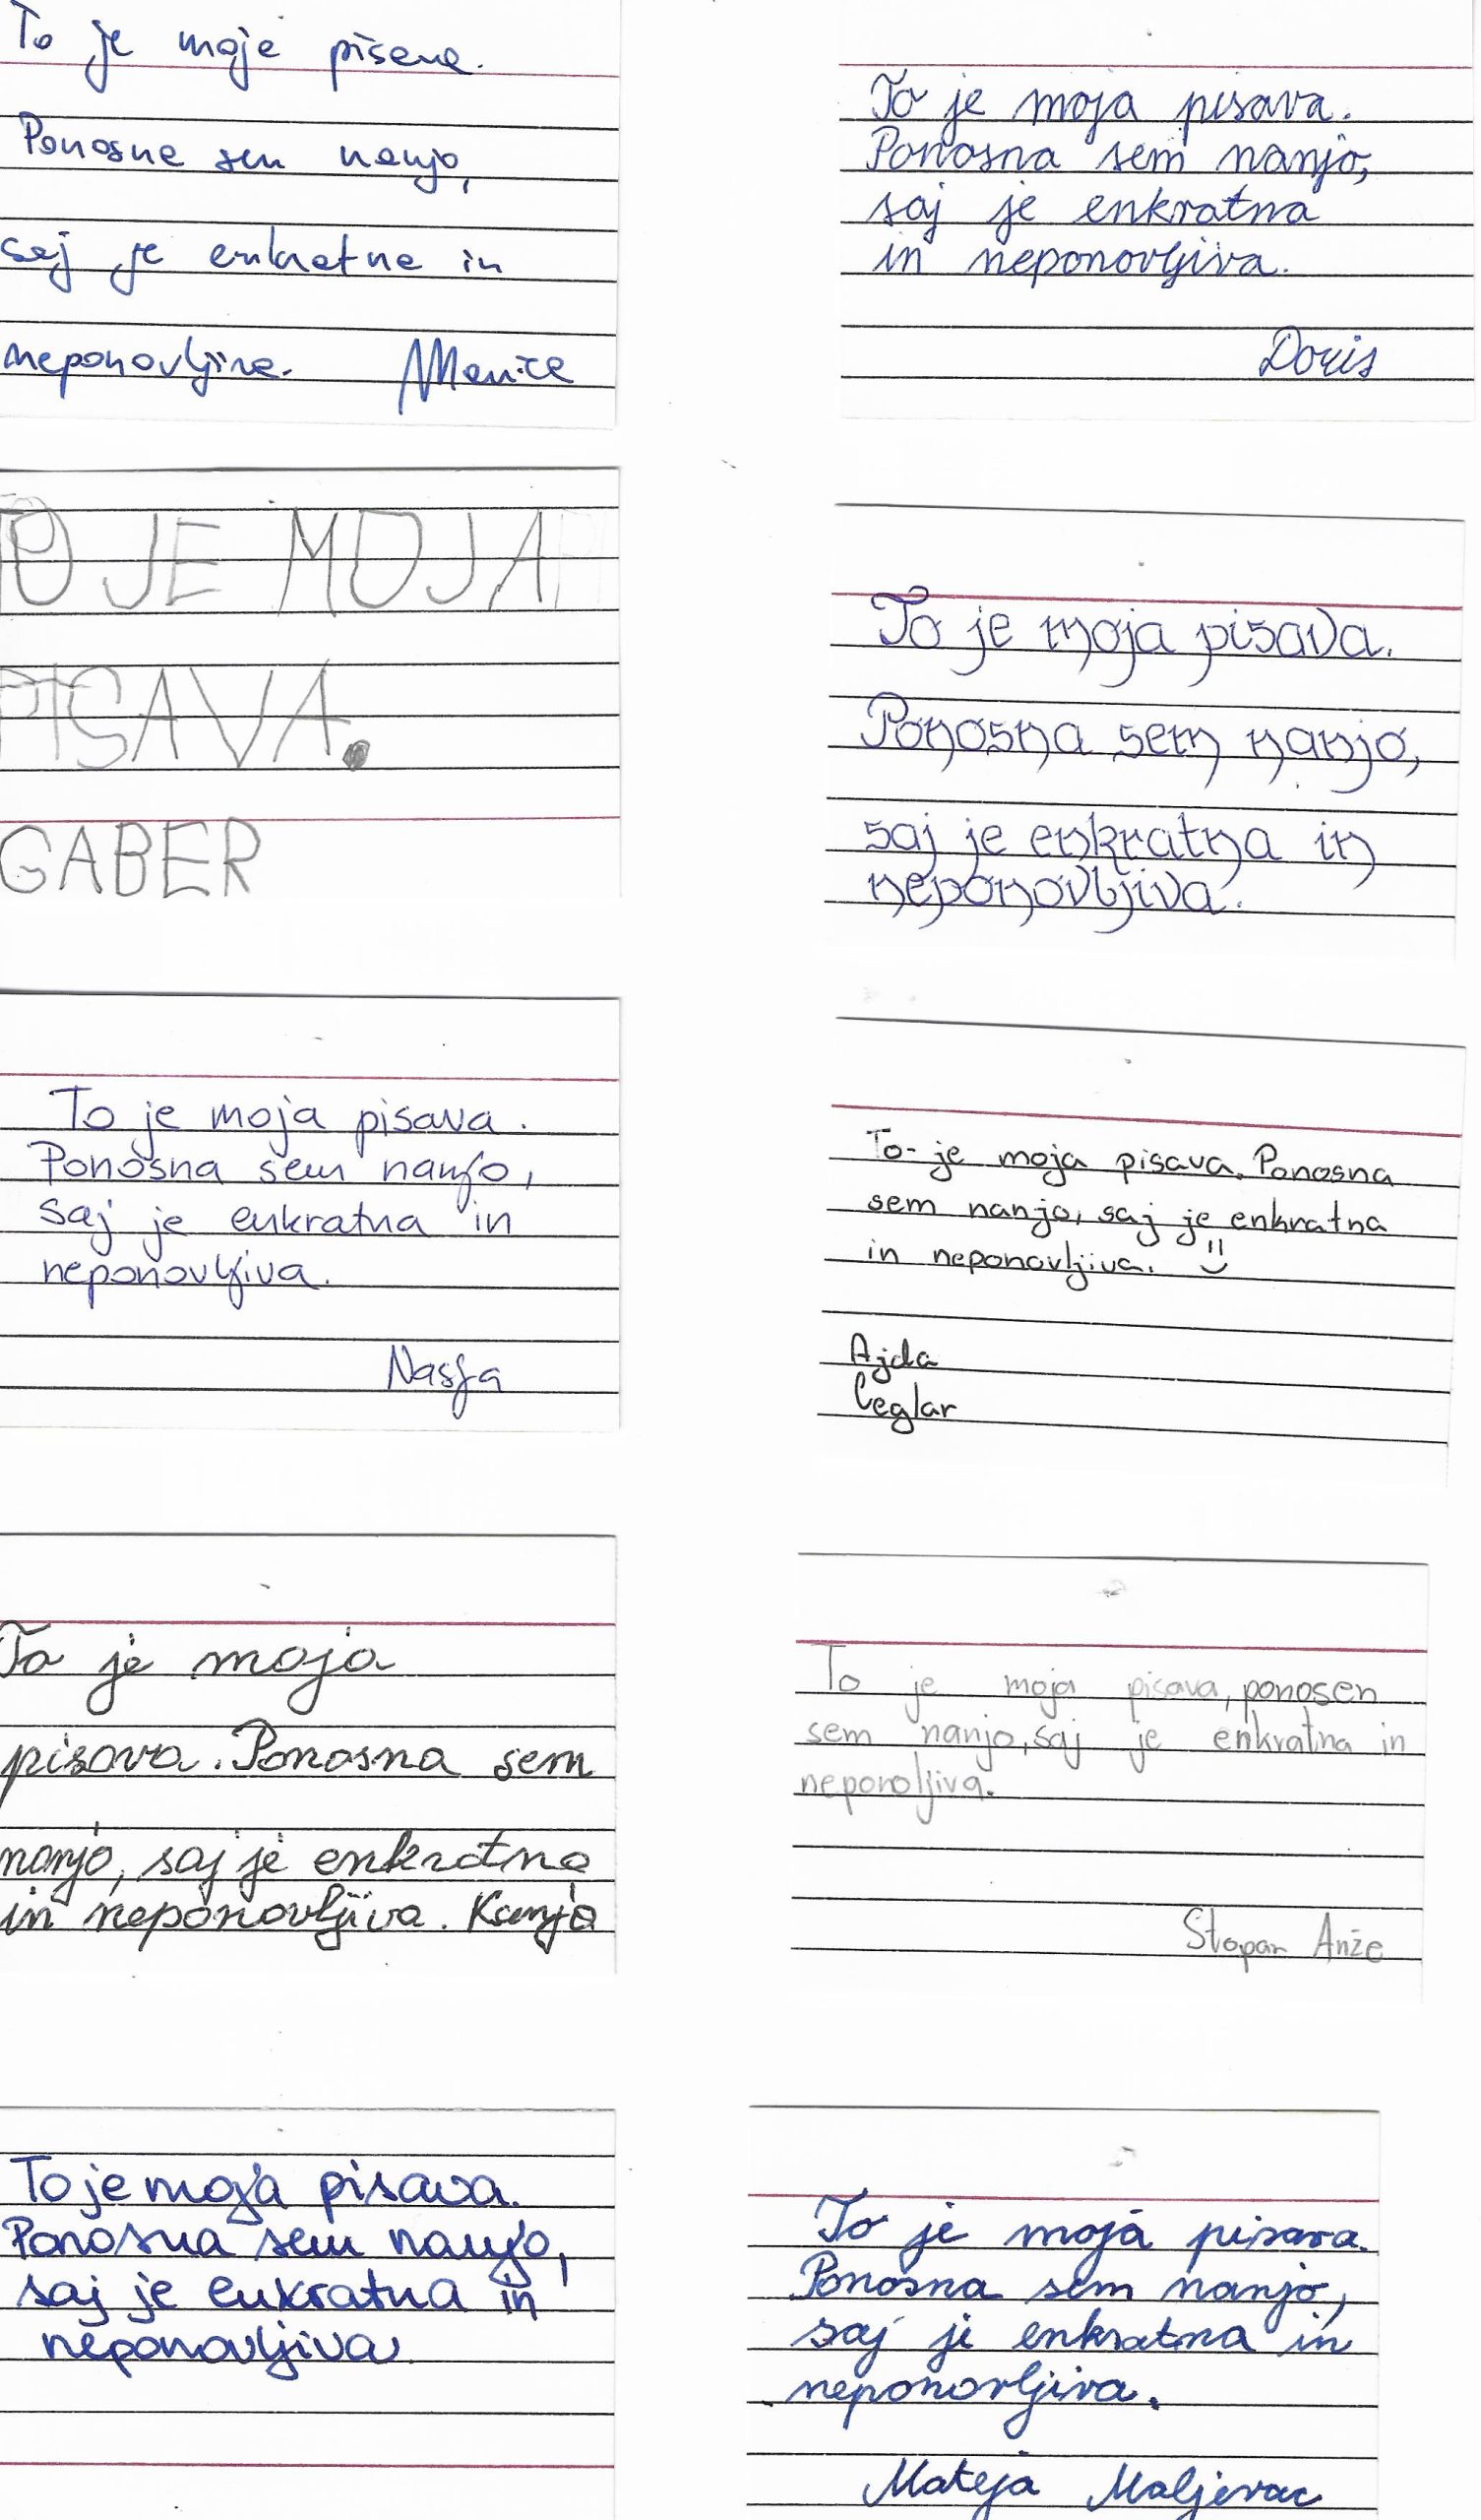 To je moja pisava.
Ponosna sem nanjo,
saj je enkratna in
neponovljiva. Marica
To je moja pisava.
Ponosna sem nanjo,
saj je enkratna
in neponovljiva.
Doris
TO JE MOJA
PISAVA.
GABER
To je moja pisava.
Ponosna sem nanjo,
saj je enkratna in
neponovljiva.
To je moja pisava.
Ponosna sem nanjo,
saj je enkratna in
neponovljiva.
Nasja
To je moja pisava. Ponosna
sem nanjo, saj je enkratna
in neponovljiva. :)
Ajda
Ceglar
To je moja
pisava. Ponosna sem
nanjo, saj je enkratna
in neponovljiva. Ksenja
To je moja pisava, ponosen
sem nanjo, saj je enkratna in
neponoljiva.
Stopar Anže
To je moja pisava.
Ponosna sem nanjo,
saj je enkratna in
neponovljiva
To je moja pisava.
Ponosna sem nanjo,
saj je enkratna in
neponovljiva.
Mateja Maljevac